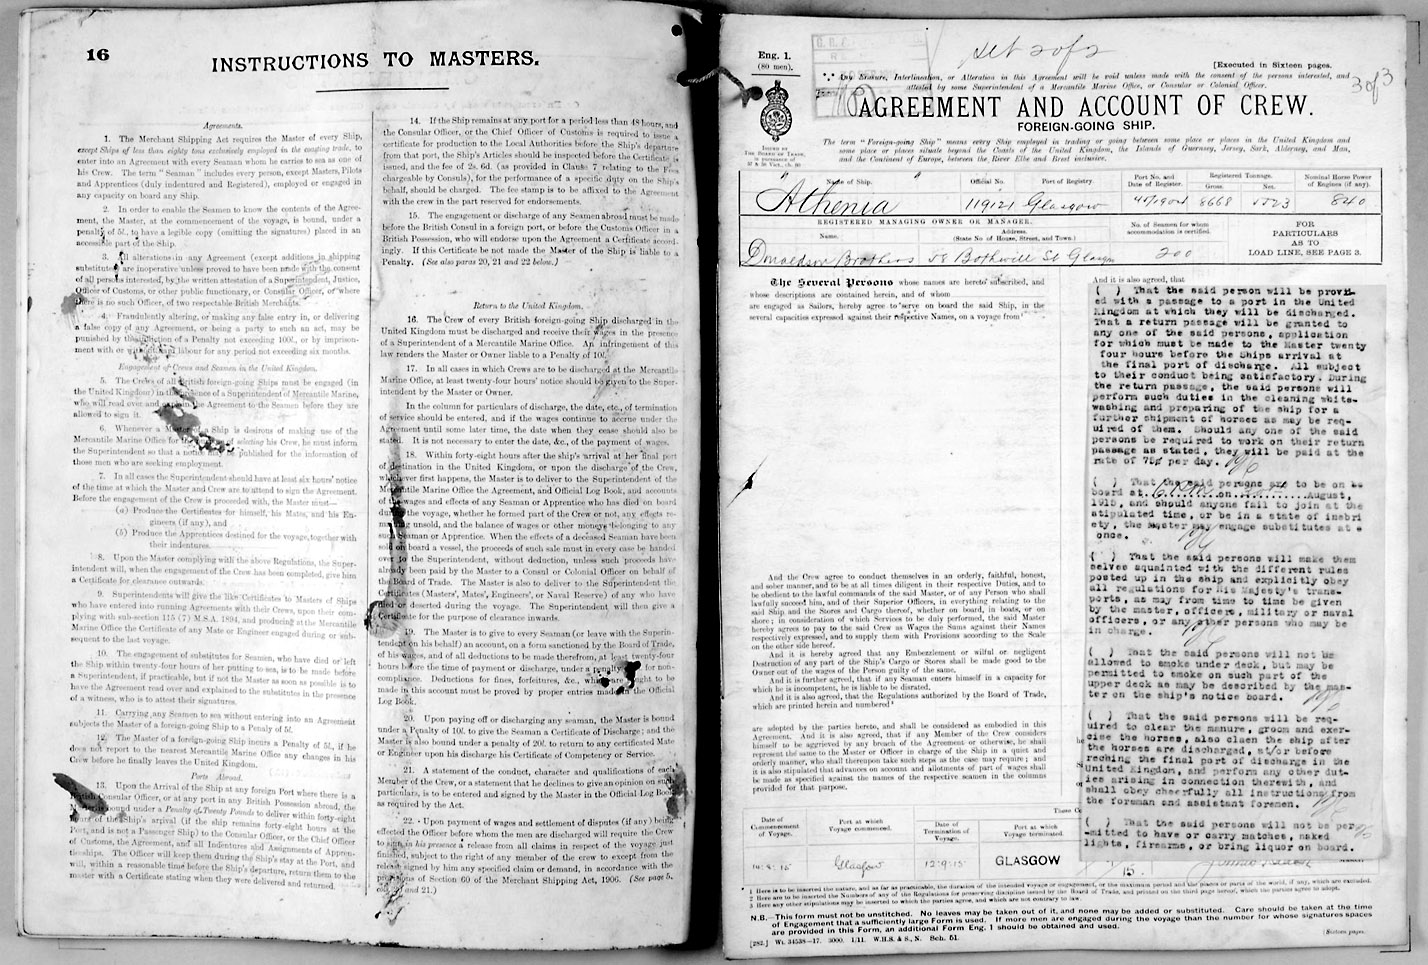 16
INSTRUCTIONS TO MASTERS.
Agreements.
1. The Merchant Shipping Act requires the Master of every Ship,
except Ships of less than eighty tons exclusively employed in the coasting trade, to
enter into an Agreement with every Seaman whom he carries to sea as one of
his Crew. The term "Seaman" includes every person, except Masters, Pilots
and Apprentices (duly indentured and Registered), employed or engaged in
any capacity on board any Ship.
2. In order to enable the Seamen to know the contents of the Agree-
ment, the Master, at the commencement of the voyage, is bound, under a
penalty of 5l., to have a legible copy (omitting the signatures) placed in an
accessible part of the Ship.
3. All alterations in any Agreement (except additions in shipping
substitutes) are inoperative unless proved to have been made with the consent
of all persons interested, by the written attestation of a Superintendent, Justice,
Officer of Customs, or other public functionary, or Consular Officer, or where
there is no such Officer, of two respectable British Merchants.
4. Fraudulently altering, or making any false entry in, or delivering
a false copy of any Agreement, or being a party to such an act, may be
punished by the infliction of a Penalty not exceeding 100l., or by imprison-
ment with or without hard labour for any period not exceeding six months.
Engagement of Crews and Seamen in the United Kingdom.
5. The Crews of all British foreign-going Ships must be engaged (in
the United Kingdom) in the presence of a Superintendent of Mercantile Marine,
who will read over and explain the Agreement to the Seamen before they are
allowed to sign it.
6. Whenever a Master of a Ship is desirous of making use of the
Mercantile Marine Office for the selecting his Crew, he must inform
the Superintendent so that a notice may be published for the information of
those men who are seeking employment.
7. In all cases the Superintendent should have at least six hours' notice
of the time at which the Master and Crew are to attend to sign the Agreement.
Before the engagement of the Crew is proceeded with, the Master must—
(a) Produce the Certificates for himself, his Mates, and his En-
gineers (if any), and
(b) Produce the Apprentices destined for the voyage, together with
their indentures.
8. Upon the Master complying with the above Regulations, the Super-
intendent will, when the engagement of the Crew has been completed, give him
a Certificate for clearance outwards.
9. Superintendents will give the like Certificates to Masters of Ships
who have entered into running Agreements with their Crews, upon their com-
plying with sub-section 115 (7) M.S.A. 1894, and producing at the Mercantile
Marine Office the Certificate of any Mate or Engineer engaged during or sub-
sequent to the last voyage.
10. The engagement of substitutes for Seamen, who have died or left
the Ship within twenty-four hours of her putting to sea, is to be made before
a Superintendent, if practicable, but if not the Master as soon as possible is to
have the Agreement read over and explained to the substitutes in the presence
of a witness, who is to attest their signatures.
11. Carrying any Seamen to sea without entering into an Agreement
subjects the Master of a foreign-going Ship to a Penaly of 5l.
12. The Master of a foreign-going Ship incurs a Penalty of 5l., if he
does not report to the nearest Mercantile Marine Office any changes in his
Crew before he finally leaves the United Kingdom.
Ports Abroad.
13. Upon the Arrival of the Ship at any foreign Port where there is a
British Consular Officer, or at any port in any British Possession abroad, the
Master is bound under a Penalty of Twenty Pounds to deliver within forty-eight
hours of the Ship's arrival (if the ship remains forty-eight hours at the
Port, and is not a Passenger Ship) to the Consular Officer, or the Chief Officer
of Customs, the Agreement, and all Indentures and Assignments of Appren-
ticeships. The Officer will keep them during the Ship's stay at the Port, and
will, within a reasonable time before the Ship's departure, return them to the
master with a Certificate stating when they were delivered and returned.
14. If the Ship remains at any port for a period less than 48 hours, and
the Consular Officer, or the Chief Officer of Customs is required to issue a
certificate for production to the Local Authorities before the Ship's departure
from that port, the Ship's Articles should be inspected before the Certificate is
issued, and the fee of 2s. 6d. (as provided in Clause 7 relating to the Fees
chargeable by Consuls), for the performance of a specific duty on the Ship's
behalf, should be charged. The fee stamp is to be affixed to the Agreement
with the crew in the part reserved for endorsements.
15. The engagement or discharge of any Seaman abroad must be made
before the British Consul in a foreign port, or before the Customs Officer in a
British Possession, who will endorse upon the Agreement a Certificate accord-
ingly. If this Certificate be not made the Master of the Ship is liable to a
Penalty. (See also paras 20, 21 and 22 below.)
Return to the United Kingdom.
16. The Crew of every British foreign-going Ship discharged in the
United Kingdom must be discharged and receive their wages in the presence
of a Superintendent of a Mercantile Marine Office. An infringement of this
law renders the Master or Owner liable to a Penalty of 10l.
17. In all cases in which Crews are to be discharged at the Mercantile
Marine Office, at least twenty-four hours' notice should be given to the Super-
intendent by the Master or Owner.
In the column for particulars of discharge, the date, etc., of termination
of service should be entered, and if the wages continue to accrue under the
Agreement until some later time, the date when they cease should also be
stated. It is not necessary to enter the date, &c., of the payment of wages.
18. Within forty-eight hours after the ship's arrival at her final port
of destination in the United Kingdom, or upon the discharge of the Crew,
whichever first happens, the Master is to deliver to the Superintendent of the
Mercantile Marine Office the Agreement, and Official Log Book, and accounts
of the wages and effects of any Seaman or Apprentice who has died on board
during the voyage, whether he formed part of the Crew or not, any effects re-
maining unsold, and the balance of wages or other moneys belonging to any
such Seaman or Apprentice. When the effects of a deceased Seaman have been
sold on board a vessel, the proceeds of such sale must in every case be handed
over to the Superintendent, without deduction, unless such proceeds have
already been paid by the Master to a Consul or Colonial Officer on behalf of
the Board of Trade. The Master is also to deliver to the Superintendent the
Certificates (Masters', Mates', Engineers', or Naval Reserve) of any who have
died or deserted during the voyage. The Superintendent will then give a
Certificate for the purpose of clearance inwards.
19. The Master is to give to every Seaman (or leave with the Superin-
tendent on his behalf) an account, on a form sanctioned by the Board of Trade,
of his wages, and of all deductions to be made therefrom, at least twenty-four
hours before the time of payment or discharge, under a penalty for non-
compliance. Deductions for fines, forfeitures, &c., which are sought to be
made in this account must be proved by proper entries made in the Official
Log Book.
20. Upon paying off or discharging any seaman, the Master is bound
under a Penalty of 10l. to give the Seaman a Certificate of Discharge; and the
Master is also bound under a penalty of 20l. to return to any certificated Mate
or Engineer upon his discharge his Certificate of Competency or Service.
21. A statement of the conduct, character and qualifications of each
Member of the Crew, or a statement that he declines to give an opinion on such
particulars, is to be entered and signed by the Master in the Official Log Book
as required by the Act.
22. Upon payment of wages and settlement of disputes (if any) being
effected the Officer before whom the men are discharged will require the Crew
to sign in his presence a release from all claims in respect of the voyage just
finished, subject to the right of any member of the crew to except from the
release signed by him any specified claim or demand, in accordance with the
provisions of Section 60 of the Merchant Shipping Act, 1906. (See page 5,
and 21.)
Set 2 of 2
3 of 3
Eng. 1.
(80 men).
[Executed in Sixteen pages.
Any Erasure, Interlineation, or Alteration in this Agreement will be void unless made with the consent of the persons interested, and
attested by some Superintendent of a Mercantile Marine Office, or Consular or Colonial Officer.
AGREEMENT AND ACCOUNT OF CREW.
FOREIGN-GOING SHIP.
ISSUED BY
THE BOARD OF TRADE,
in pursuance of
57 & 58 Vict., ch. 60
The term "Foreign-going Ship" means every Ship employed in trading or going between some place or places in the United Kingdom and
some place or places situate beyond the Coasts of the United Kingdom, the Islands of Guernsey, Jersey, Sark, Alderney, and Man,
and the Continent of Europe, between the River Elbe and Brest inclusive.
Name of Ship. Official No. Port of Registry. Port No. and Date of Register. Registered Tonnage. Gross. Net. Nominal Horse Power of Engines (if any).
"Athenia" 119121 Glasgow 45/1904 8668 5523 840
REGISTERED MANAGING OWNER OR MANAGER.
Name. Address. (State No of House, Street, and Town.)
No. of Seamen for whom accommodation is certified.
FOR
PARTICULARS
AS TO
LOAD LINE, SEE PAGE 3.
Donaldson Brothers 58 Bothwell St Glasgow 200
The Several Persons whose names are hereto subscribed, and
whose descriptions are contained herein, and of whom
are engaged as Sailors, hereby agree to serve on board the said Ship, in the
several capacities expressed against their respective Names, on a voyage from
And the Crew agree to conduct themselves in an orderly, faithful, honest,
and sober manner, and to be at all times diligent in their respective Duties, and to
be obedient to the lawful commands of the said Master, or of any Person who shall
lawfully succeed him, and of their Superior Officers, in everything relating to the
said Ship and the Stores and Cargo thereof, whether on board, in boats, or on
shore; in consideration of which Services to be duly performed, the said Master
hereby agrees to pay to the said Crew as Wages the Sums against their Names
respectively expressed, and to supply them with Provisions according to the Scale
on the other side hereof.
And it is hereby agreed, that any Embezzlement or wilful or negligent
Destruction of any part of the Ship's Cargo or Stores shall be made good to the
Owner out of the Wages of the Person guilty of the same.
And it is further agreed, that if any Seaman enters himself in a capacity for
which he is incompetent, he is liable to be disrated.
And it is also agreed, that the Regulations authorized by the Board of Trade,
which are printed herein and numbered
are adopted by the parties hereto, and shall be considered as embodied in this
Agreement. And it is also agreed, that if any Member of the Crew considers
himself to be aggrieved by any breach of the Agreement or otherwise, he shall
represent the same to the Master or Officer in charge of the Ship in a quiet and
orderly manner, who shall thereupon take such steps as the case may require; and
it is also stipulated that advances on account and allotments of part of wages shall
be made as specified against the names of the respective seamen in the columns
provided for that purpose.
And it is also agreed, that
( ) That the said person will be provid-
ed with a passage to a port in the United
Kingdom at which they will be discharged.
That a return passage will be granted to
any one of the said persons, application
for which must be made to the Master twenty
four hours before the Ships arrival at
the final port of discharge. All subject
to their conduct being satisfactory. During
the return passage, the said persons will
perform such duties in the cleaning white-
washing and preparing of the ship for a
further shipment of horses as may be req-
uired of them. Should any one of the said
persons be required to work on their return
passage as stated, they will be paid at the
rate of 75¢ per day.
( ) That the said persons are to be on
board at on August,
1915, and should anyone fail to join at the
stipulated time, or be in a state of inebri
ety, the Master may engage substitutes at
once.
( ) That the said persons will make them
selves aquainted with the different rules
posted up in the ship and explicitly obey
all regulations for His Majesty's trans-
ports, as may from time to time be given
by the master, officers, military or naval
officers, or any other persons who may be
in charge.
( ) That the said persons will not be
allowed to smoke under deck, but may be
permitted to smoke on such part of the
upper deck as may be described by the mas-
ter on the ship's notice board.
( ) That the said persons will be req-
uired to clear the manure, groom and exer-
cise the horses, also claen the ship after
the horses are discharged, at/or before
reching the final port of discharge in the
United Kingdom, and perform any other dut-
ies arising in connection therewith, and
shall obey cheerfully all instructions from
the foreman and assistant foremen.
( ) That the said persons will not be per
-mitted to have or carry matches, naked
lights, firearms, or bring liquor on board.
Date of Commencement of Voyage. Port at which Voyage commenced. Date of Termination of Voyage. Port at which Voyage terminated.
Glasgow 12·9·15 GLASGOW
15.
1 Here is to be inserted the nature, and as far as practicable, the duration of the intended voyage or engagement, or the maximum period and the places or parts of the world, if any, which are excluded.
2 Here are to be inserted the Numbers of any of the Regulations for preserving discipline issued by the Board of Trade, and printed on the third page hereof, which the parties agree to adopt.
3 Here any other stipulations may be inserted to which the parties agree, and which are not contrary to law.
N.B.—This form must not be unstitched. No leaves may be taken out of it, and none may be added or substituted. Care should be taken at the time
of Engagement that a sufficiently large Form is used. If more men are engaged during the voyage than the number for whose signatures spaces
are provided in this Form, an additional Form Eng. 1 should be obtained and used.
[282.] Wt. 34538—17. 3000. 1/11. W.H.S. & S., N. Sch. 51.
(Sixteen pages.